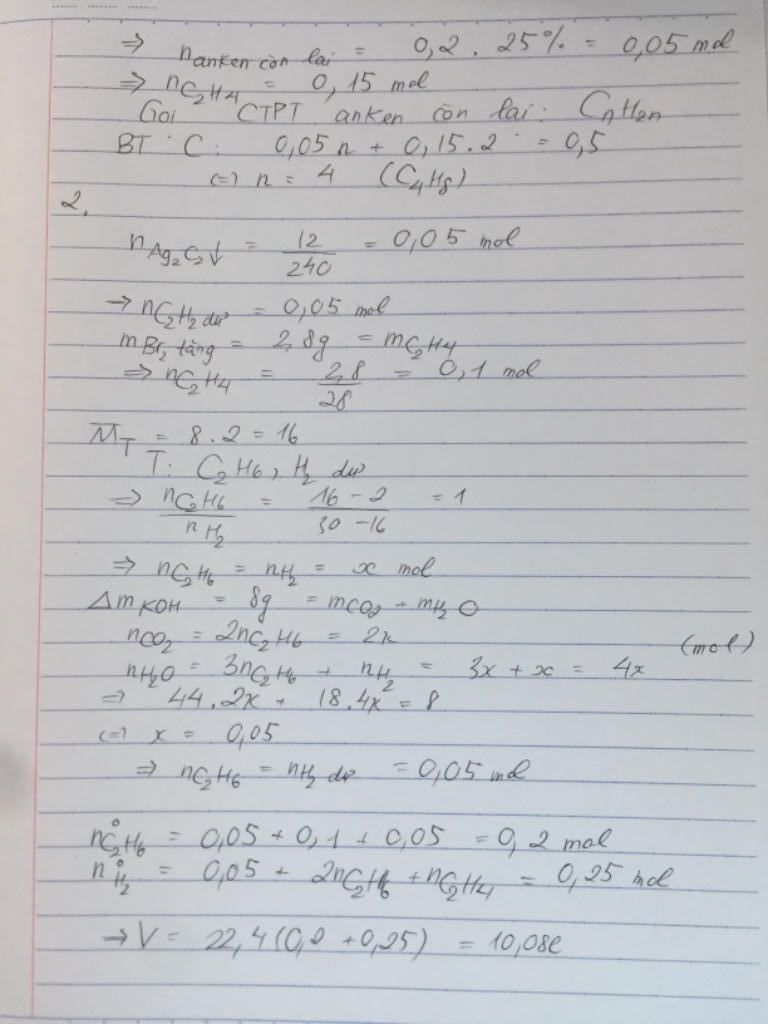 ⇒ n anken còn lại = 0,2 . 25% = 0,05 mol
⇒ nC2H4 = 0,15 mol
Gọi CTPT anken còn lại: CnH2n
BT C: 0,05 n + 0,15.2 = 0,5
(=) n = 4 (C4H8)
2.
nAg2C2↓ = 12/240 = 0,05 mol
→ nC2H2 dư = 0,05 mol
mBr2 tăng = 2,8g = mC2H4
⇒ nC2H4 = 2,8/28 = 0,1 mol
M̅T = 8.2 = 16
T: C2H6, H2 dư
⇒ nC2H6/nH2 = 16-2/30-16 = 1
⇒ nC2H6 = nH2 = x mol
ΔmKOH = 8g = mCO2 + mH2O
nCO2 = 2nC2H6 = 2x
nH2O = 3nC2H6 + nH2 = 3x + x = 4x (mol)
⇒ 44.2x + 18.4x = 8
(=) x = 0,05
⇒ nC2H6 = nH2 dư = 0,05 mol
n°C2H6 = 0,05 + 0,1 + 0,05 = 0,2 mol
n°H2 = 0,05 + 2nC2H6 + nC2H4 = 0,25 mol
→ V = 22,4(0,2 + 0,25) = 10,08l